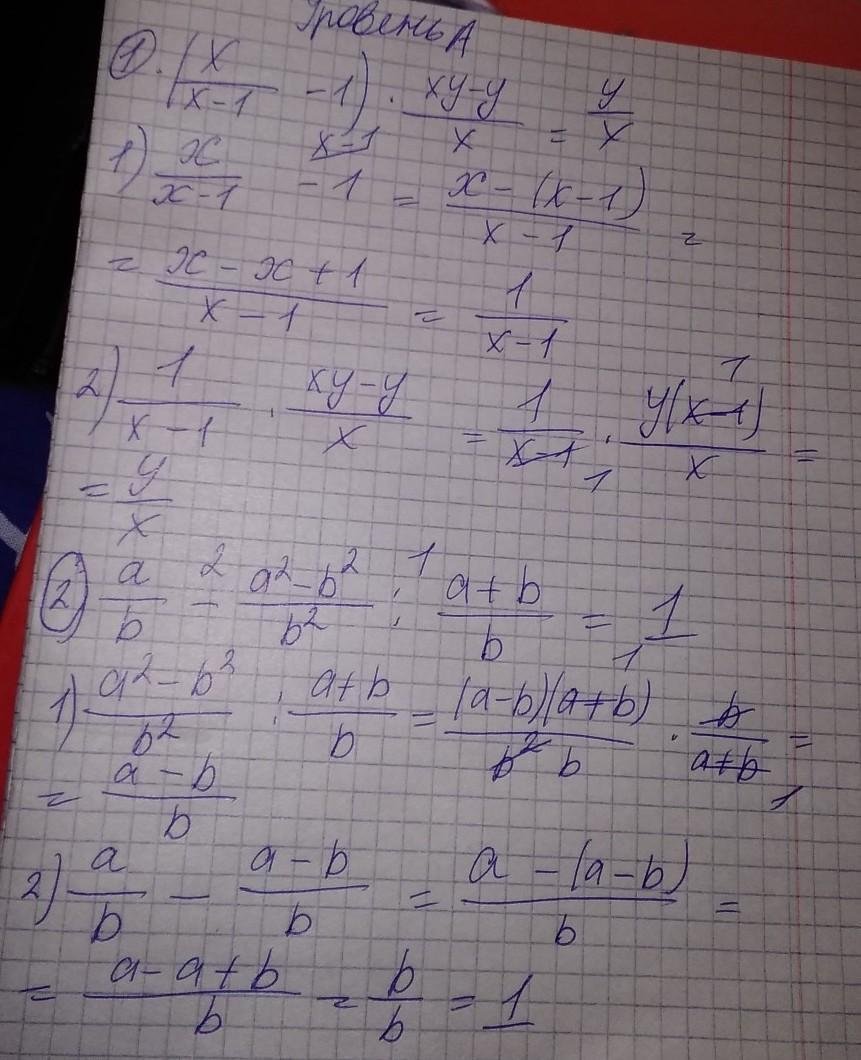 Уровень А
①. (x/(x-1) - 1) · (xy-y)/x = y/x
1) x/(x-1) - 1 x-1 = (x-(x-1))/(x-1) =
= (x-x+1)/(x-1) = 1/(x-1)
2) 1/(x-1) · (xy-y)/x = 1/(x-1) 1 · y(x-1) 1/x =
= y/x
②) a/b 2 - (a²-b²)/b² : 1 (a+b)/b = 1
1) (a²-b²)/b² : (a+b)/b = (a-b)(a+b) 1/b² b · b/(a+b) 1 =
= (a-b)/b
2) a/b - (a-b)/b = (a-(a-b))/b =
= (a-a+b)/b = b/b = 1